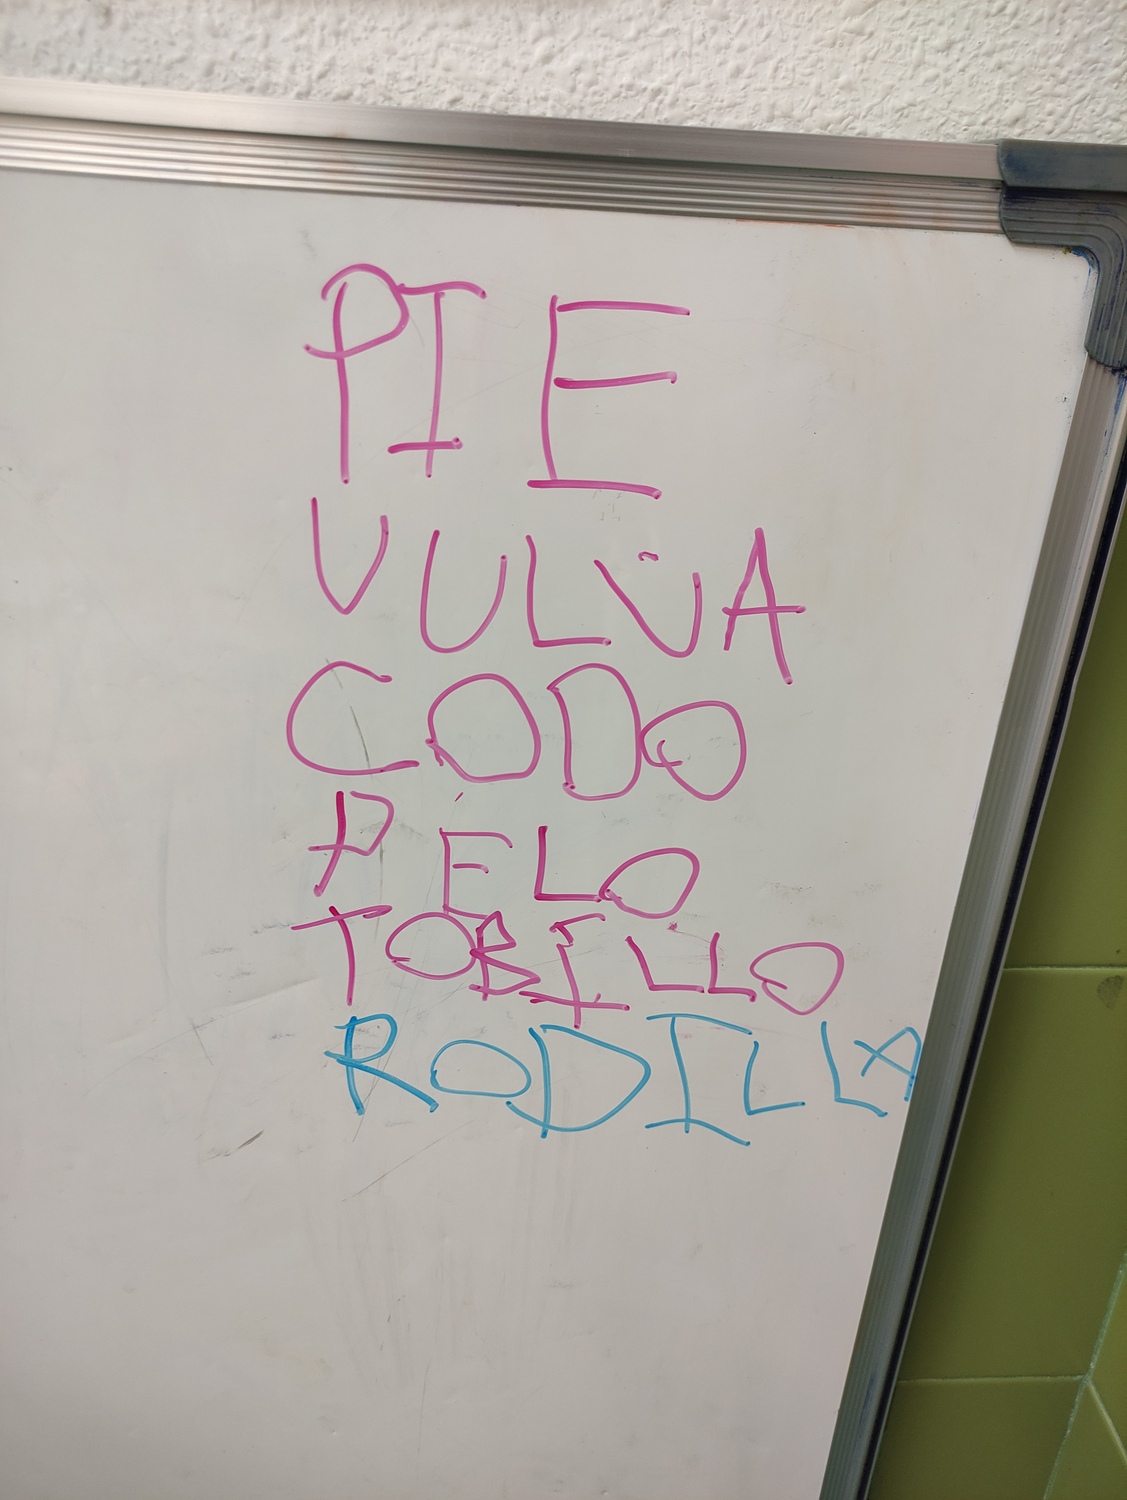 PIE
VULVA
CODO
PELO
TOBILLO
RODILLA